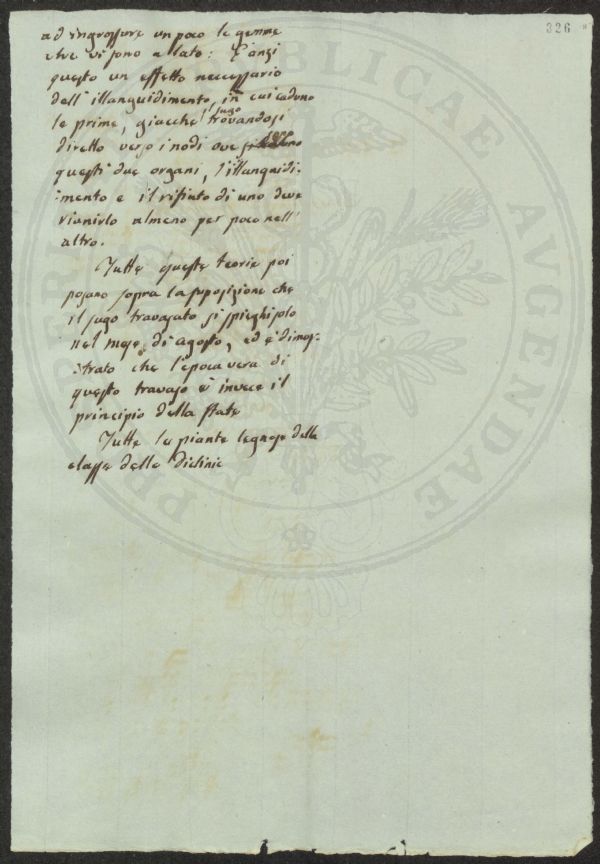 326
ad ingrossare un poco le gemme
che vi sono a lato: È anzi
questo un effetto neccessario
dell' illanguidimento, in cui cadono
le prime, giacchè il sugo trovandosi
diretto verso i nodi ove
questi due organi, l'illanguidi-
:mento e il rifiuto di uno deve
riunirlo almeno per poco nell'
altro.
Tutte queste teorie poi
posano sopra la supposizione che
il sugo travasato si spieghi solo
nel mese di agosto, ed è dimos-
:trato che l'epoca vera di
questo travaso è invece il
principio della state
Tutte le piante legnose della
classe delle diclinie
PUBLICAE
VGENDAE